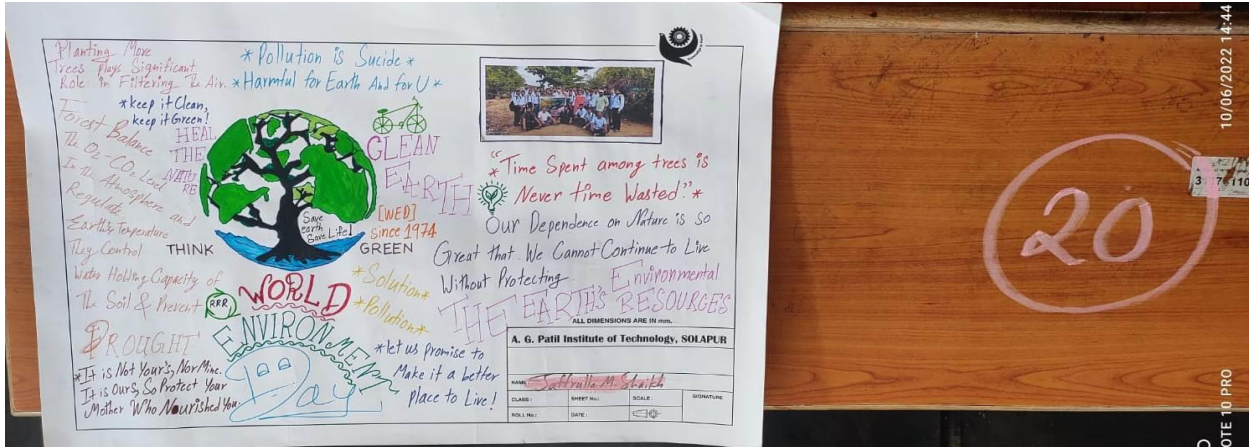 Planting More
Trees Plays Significant
Role in Filtering The Air.
* Pollution is Sucide *
* Harmful for Earth And for U *
* keep it Clean,
keep it Green!
Forest Balance
The O2-CO2 Level
In the Atmosphere and
Regulate
Earth's Temperature
They Control
Water Holding Capacity of
The Soil & Prevent
DROUGHT
* It is Not Your's, Nor Mine.
It is Ours, So Protect Your
Mother Who Nourished You.
HEAL
THE
NATU
RE
CLEAN
EARTH
[WED]
since 1974
Save
earth
Save Life!
THINK
GREEN
RRR
WORLD
ENVIRONMENT
Day
* Solution *
* Pollution *
* let us promise to
Make it a better
Place to Live!
* "Time Spent among trees is
Never time Wasted." *
Our Dependence on Nature is so
Great that We Cannot Continue to Live
Without Protecting
Environmental
THE EARTH'S RESOURCES
ALL DIMENSIONS ARE IN mm.
A. G. Patil Institute of Technology, SOLAPUR
NAME: Saffrulla M. Shaikh
CLASS :
SHEET No.:
SCALE :
SIGNATURE
ROLL No.:
DATE :
20
10/06/2022 14:44
OTE 10 PRO